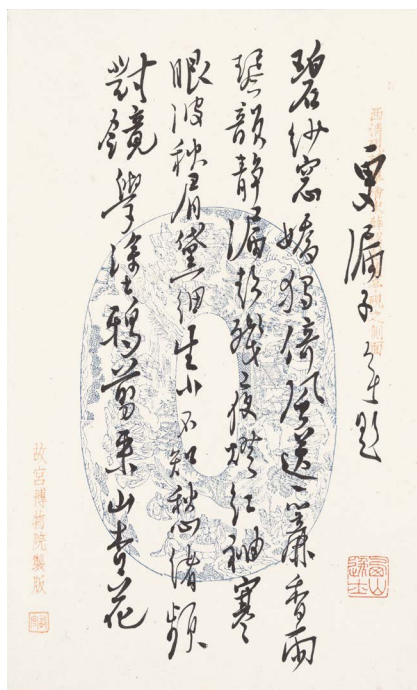 更漏子 無題
碧紗窓嬌獨倚風送一簾香雨
琴韻静漏聲殘夜燈紅袖寒
眼波秋眉黛細生小不知愁緒頻
對鏡學塗鴉剪来山杏花
故宮博物院製版